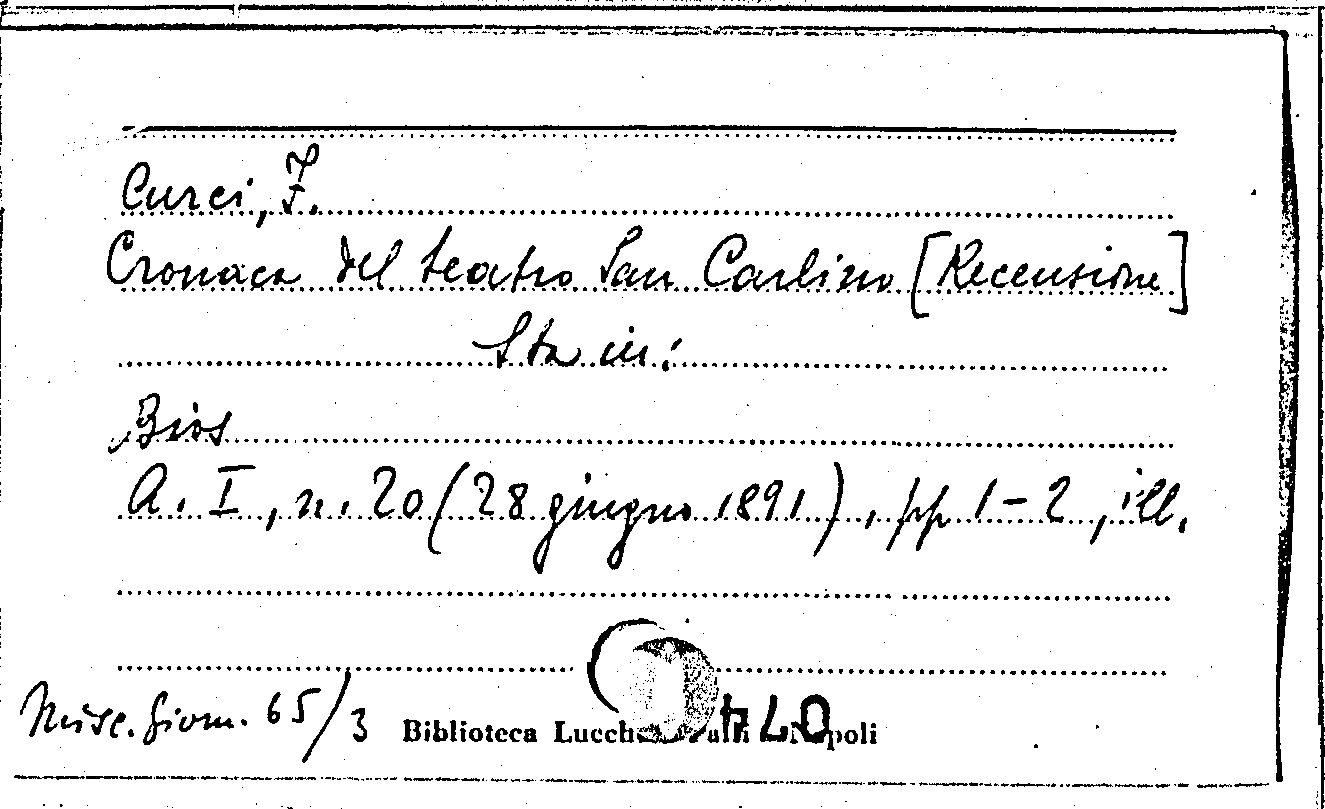 Curci, F.
Cronaca del teatro San Carlino [Recensione]
Sta in:
Bios
A. I, n. 20 (28 giugno 1891), pp 1-2, ill.
Misc. Giorn. 65/3
Biblioteca Lucch